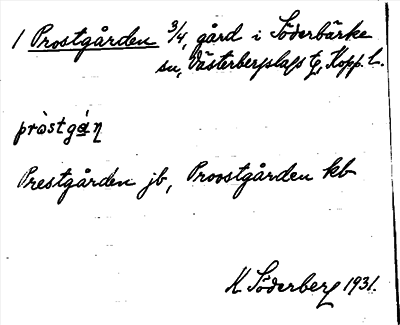 1 Prostgården 3/4, gård i Söderbärke
sn, Västerbergslags tg, Kopp. l.
pròstgá̀ṇ
Prestgården jb, Proostgården kb
K Söderberg 1931.